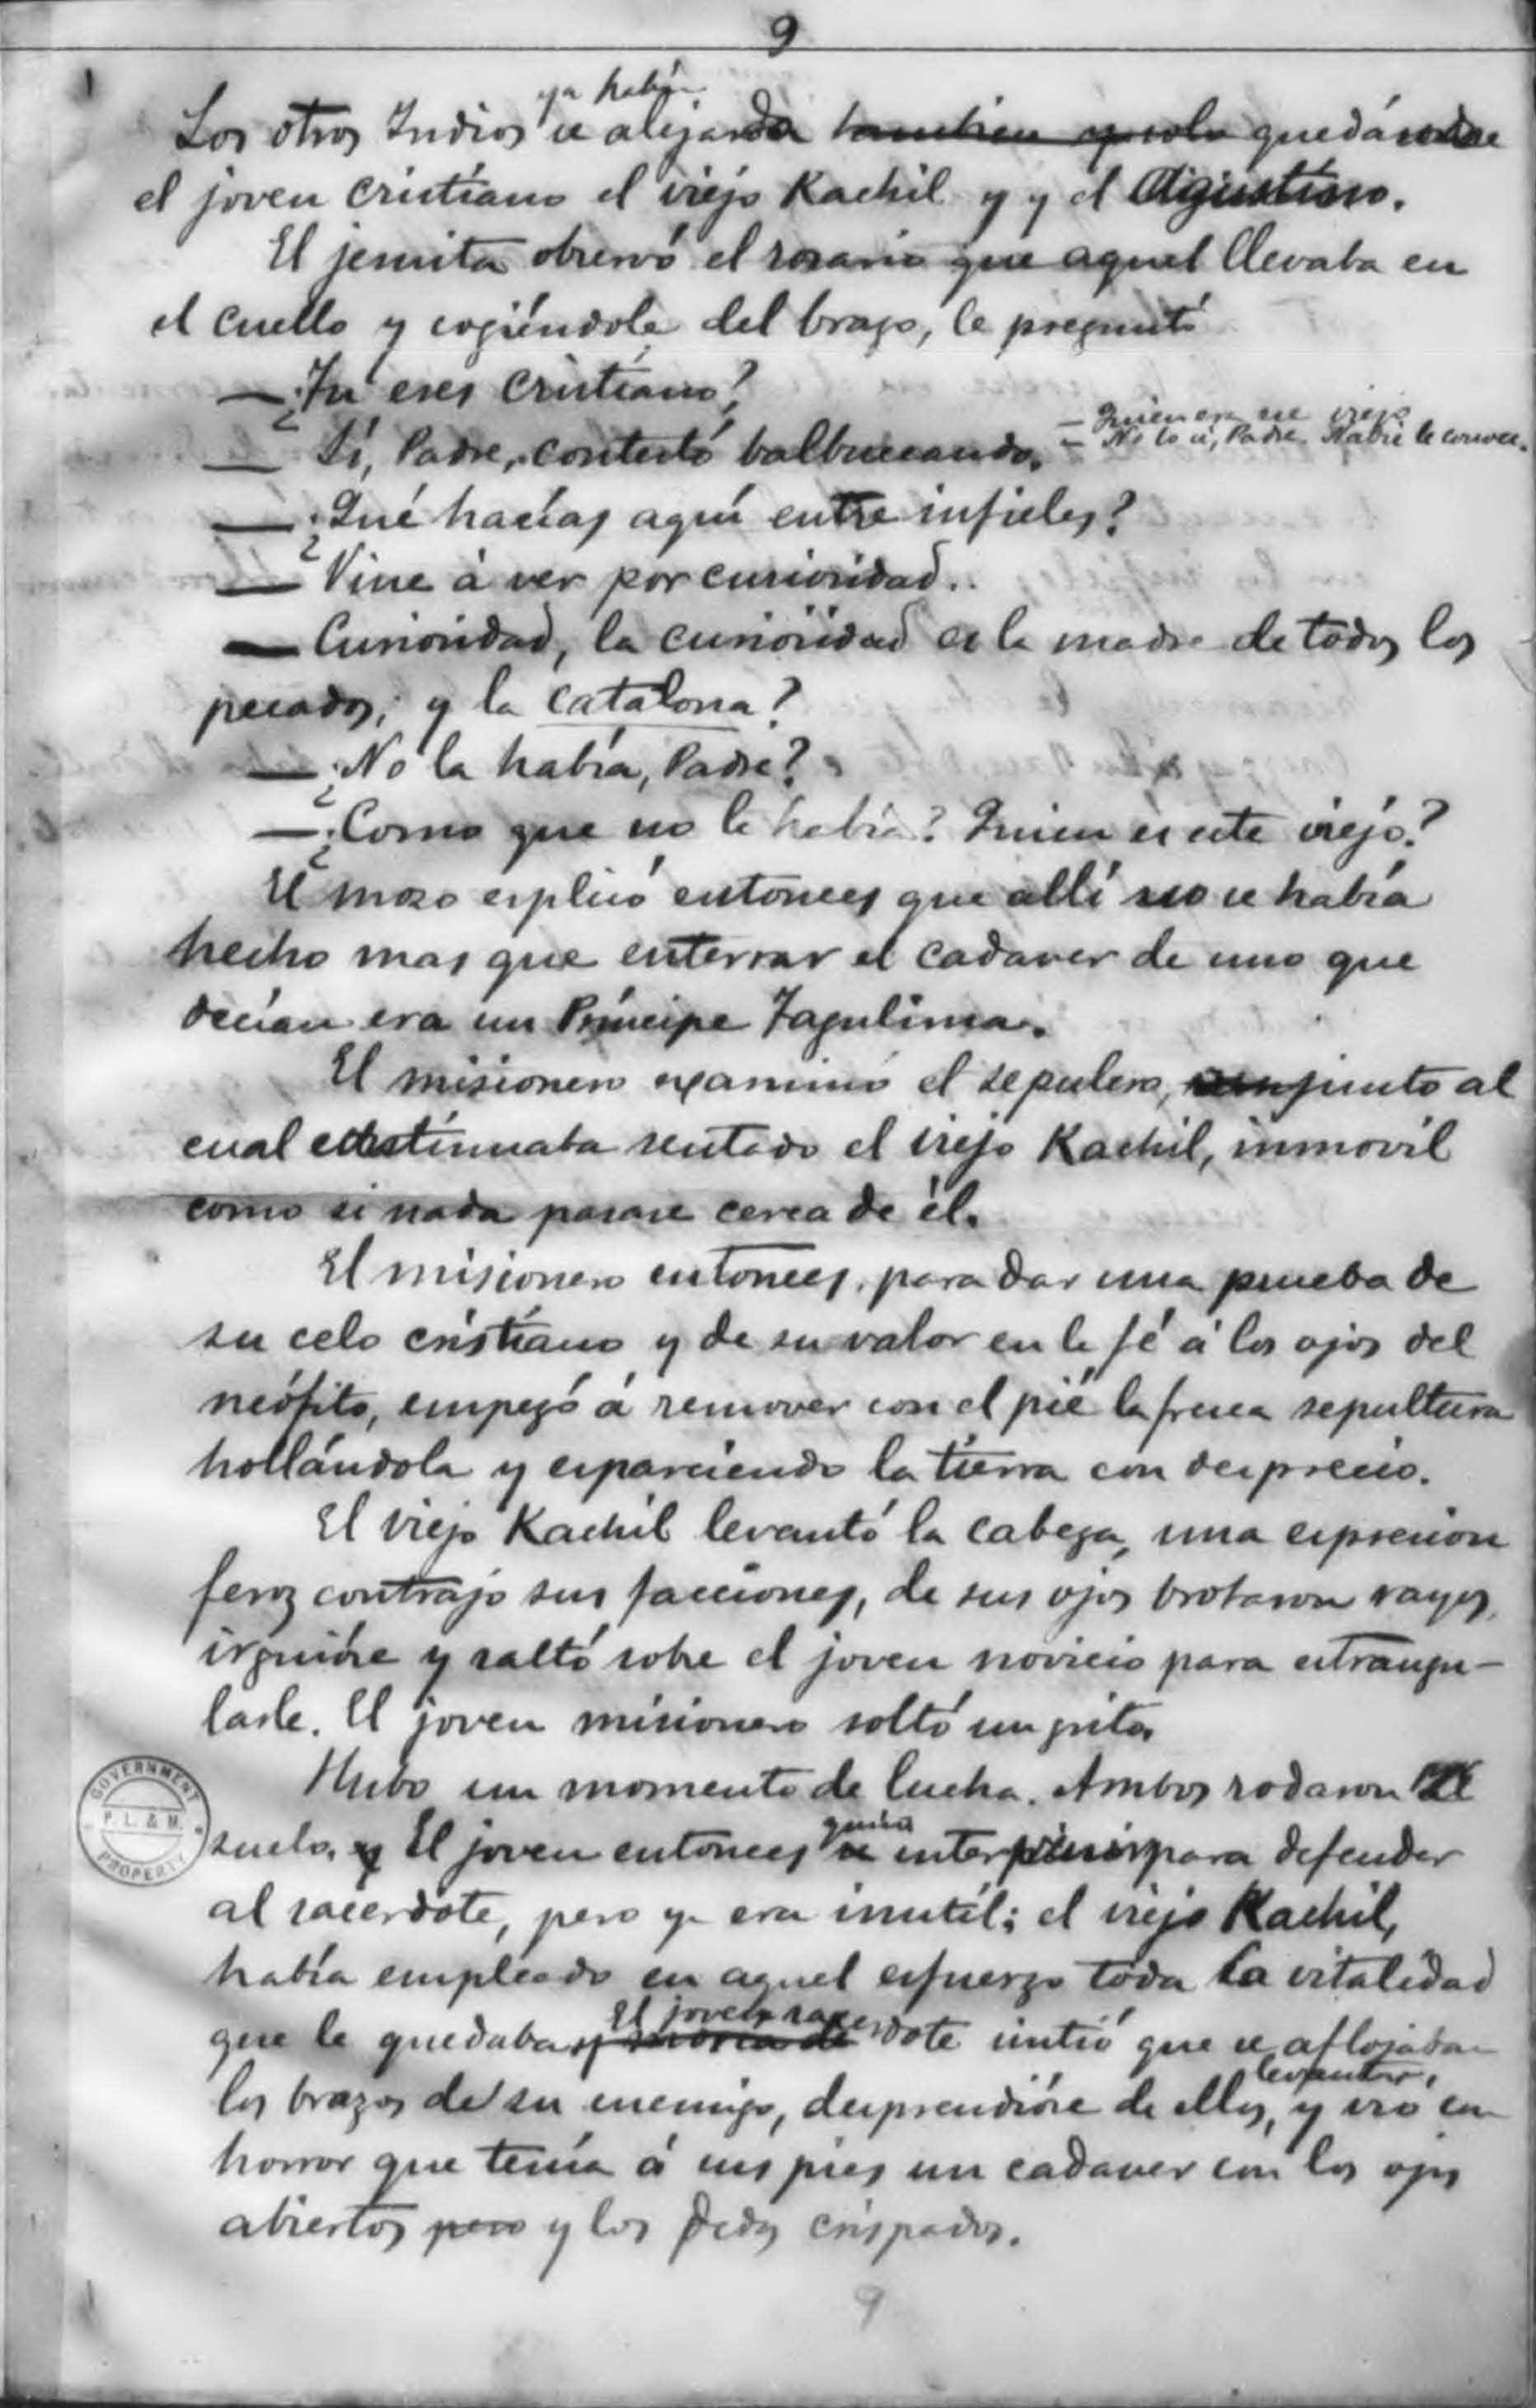 9
ya había
Los otros Indios se alejando tambien y solo quedándose
el joven cristiano el viejo Kachil y y el Agustino.
El jesuita observó el rosario que aquel llevaba en
el cuello y cogiéndole del brazo, le preguntó
— ¿Tu eres cristiano?
— Sí, Padre, contestó balbuceando.
— Quien era ese viejo
— No lo sé, Padre. Nadie le conoce.
— ¿Qué hacías aquí entre infieles?
— Vine á ver por curiosidad..
— Curiosidad, la curiosidad es la madre de todos los
pecados; y la catalona?
— ¿No la había, Padre?
— ¿Como que no la había? Quien es este viejo?
El mozo esplicó entonces que allí no se había
hecho mas que enterrar el cadaver de uno que
decían era un Príncipe Tagulima.
El misionero examinó el sepulcro, junto al
cual continuaba sentado el viejo Kachil, inmovil
como si nada pasase cerca de él.
El misionero entonces, para dar una prueba de
su celo cristiano y de su valor en la fé á los ojos del
neófito, empezó á remover con el pié la fresca sepultura
hollándola y esparciendo la tierra con desprecio.
El viejo Kachil levantó la cabeza, una espresion
feroz contrajo sus facciones, de sus ojos brotaron rayos,
irguióse y saltó sobre el joven novicio para estrangu-
larle. El joven misionero soltó un grito.
Hubo un momento de lucha. Ambos rodaron al
suelo. y El joven entonces quiso se interponer para defender
al sacerdote, pero ya era inutil; el viejo Kachil,
había empleado en aquel esfuerzo toda la vitalidad
que le quedaba y El joven sacerdote sintió que se aflojaban
los brazos de su enemigo, desprendióse de ellos, levantóse, y vio con
horror que tenía á sus pies un cadaver con los ojos
abiertos pero y los dedos crispados.
GOVERNMENT
P. L. & M.
PROPERTY
9